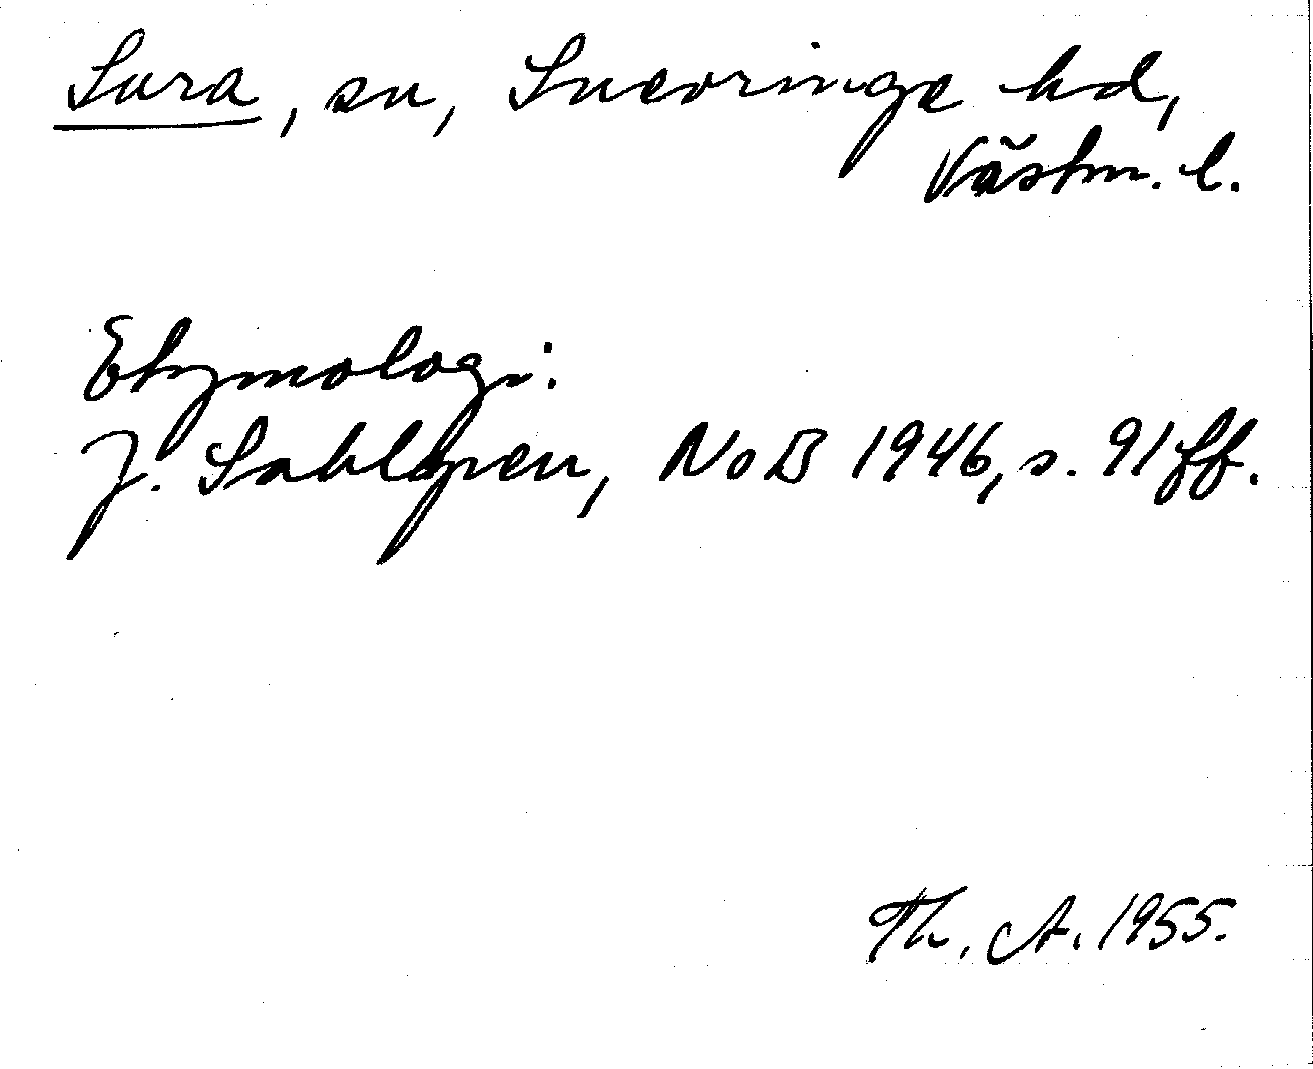 Sura, sn, Snevringe hd,
Västm. l.
Etymologi:
J. Sahlgren, NoB 1946, s. 91 ff.
Th. A. 1955.